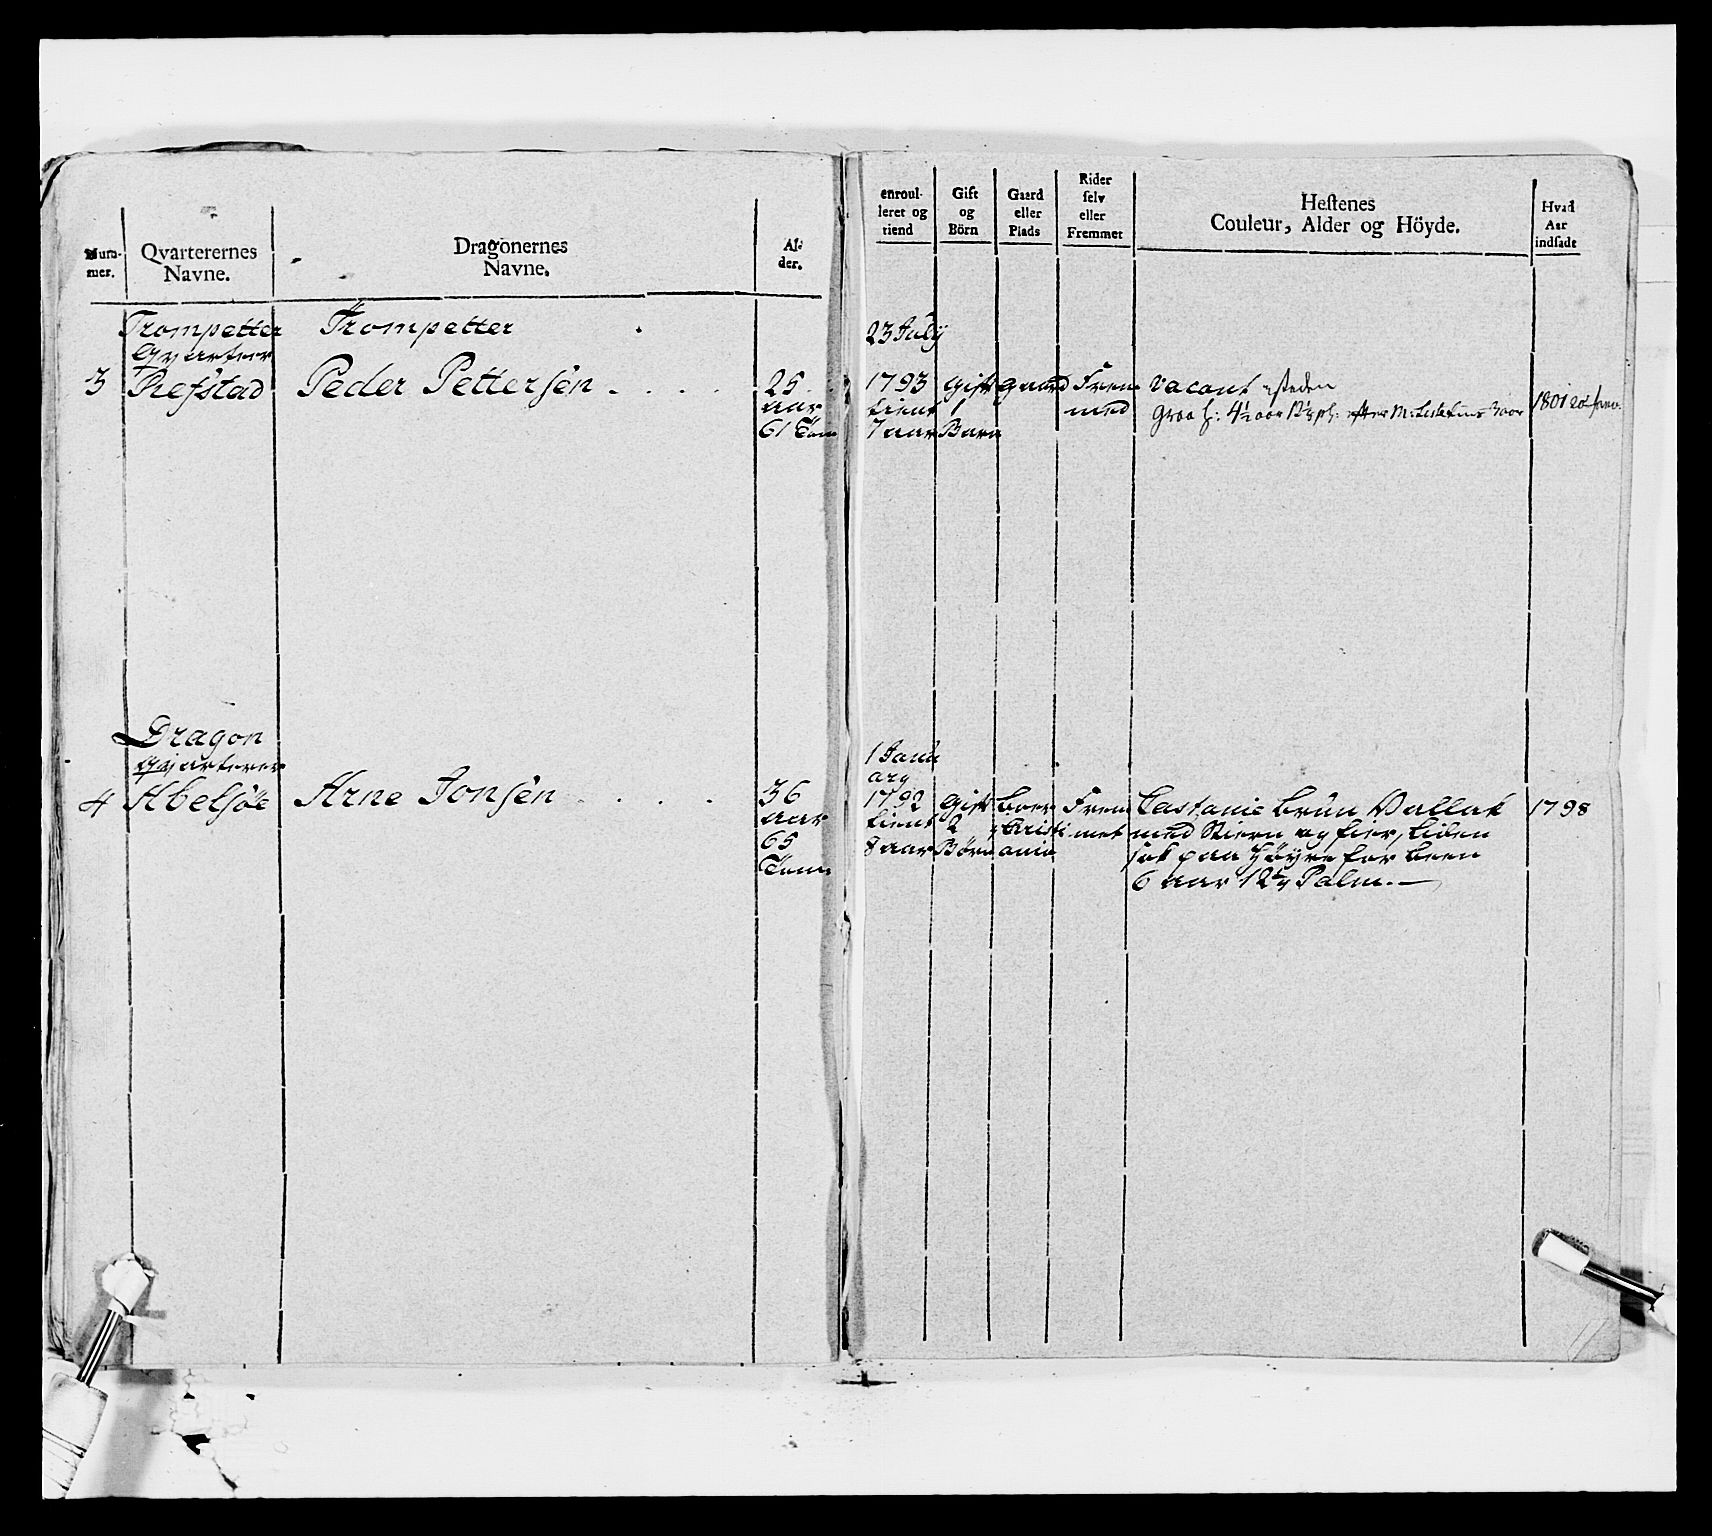 Num-
mer.
Qvarterernes
Navne.
Dragonernes
Navne.
Al-
der.
enroul-
leret og
tiend
Gift
og
Börn
Gaard
eller
Plads
Rider
selv
eller
Fremmet
Hestenes
Couleur, Alder og Höyde.
Hvad
Aar
indsadt
Trompetter
Qvarteer
3 Refstad
Trompetter
Peder Pettersen
25
aar
61 Tom
23 July
1793
tient
7 aar
Gift
1
Barn
gaard
Frem
med
Vacant
Graa h: 4½ aar 12½ p: efter
1801
Dragon
Qvarterer
4 Abelsøe
Arne Jonsen
36
aar
65
Tom
1 Janu
ary
1792
tient
8 aar
Gift
2
Børn
boer
i Christi
ania
Frem
met
Castanie Brun Vallak
med Stiern og fier, liden
sok paa Høyre for been
6 aar 12¼ Palm.
1798